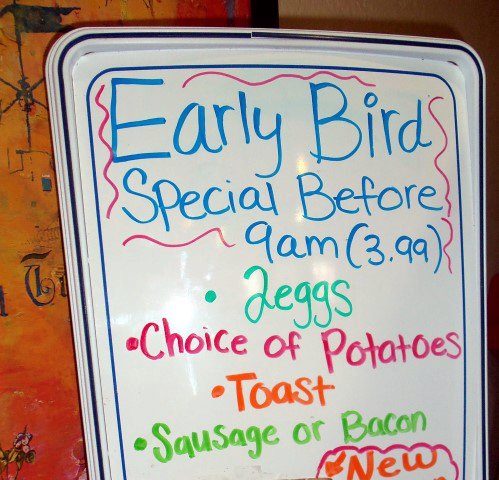 Early Bird
Special Before
9am (3.99)
• 2eggs
• Choice of Potatoes
• Toast
• Sausage or Bacon
New